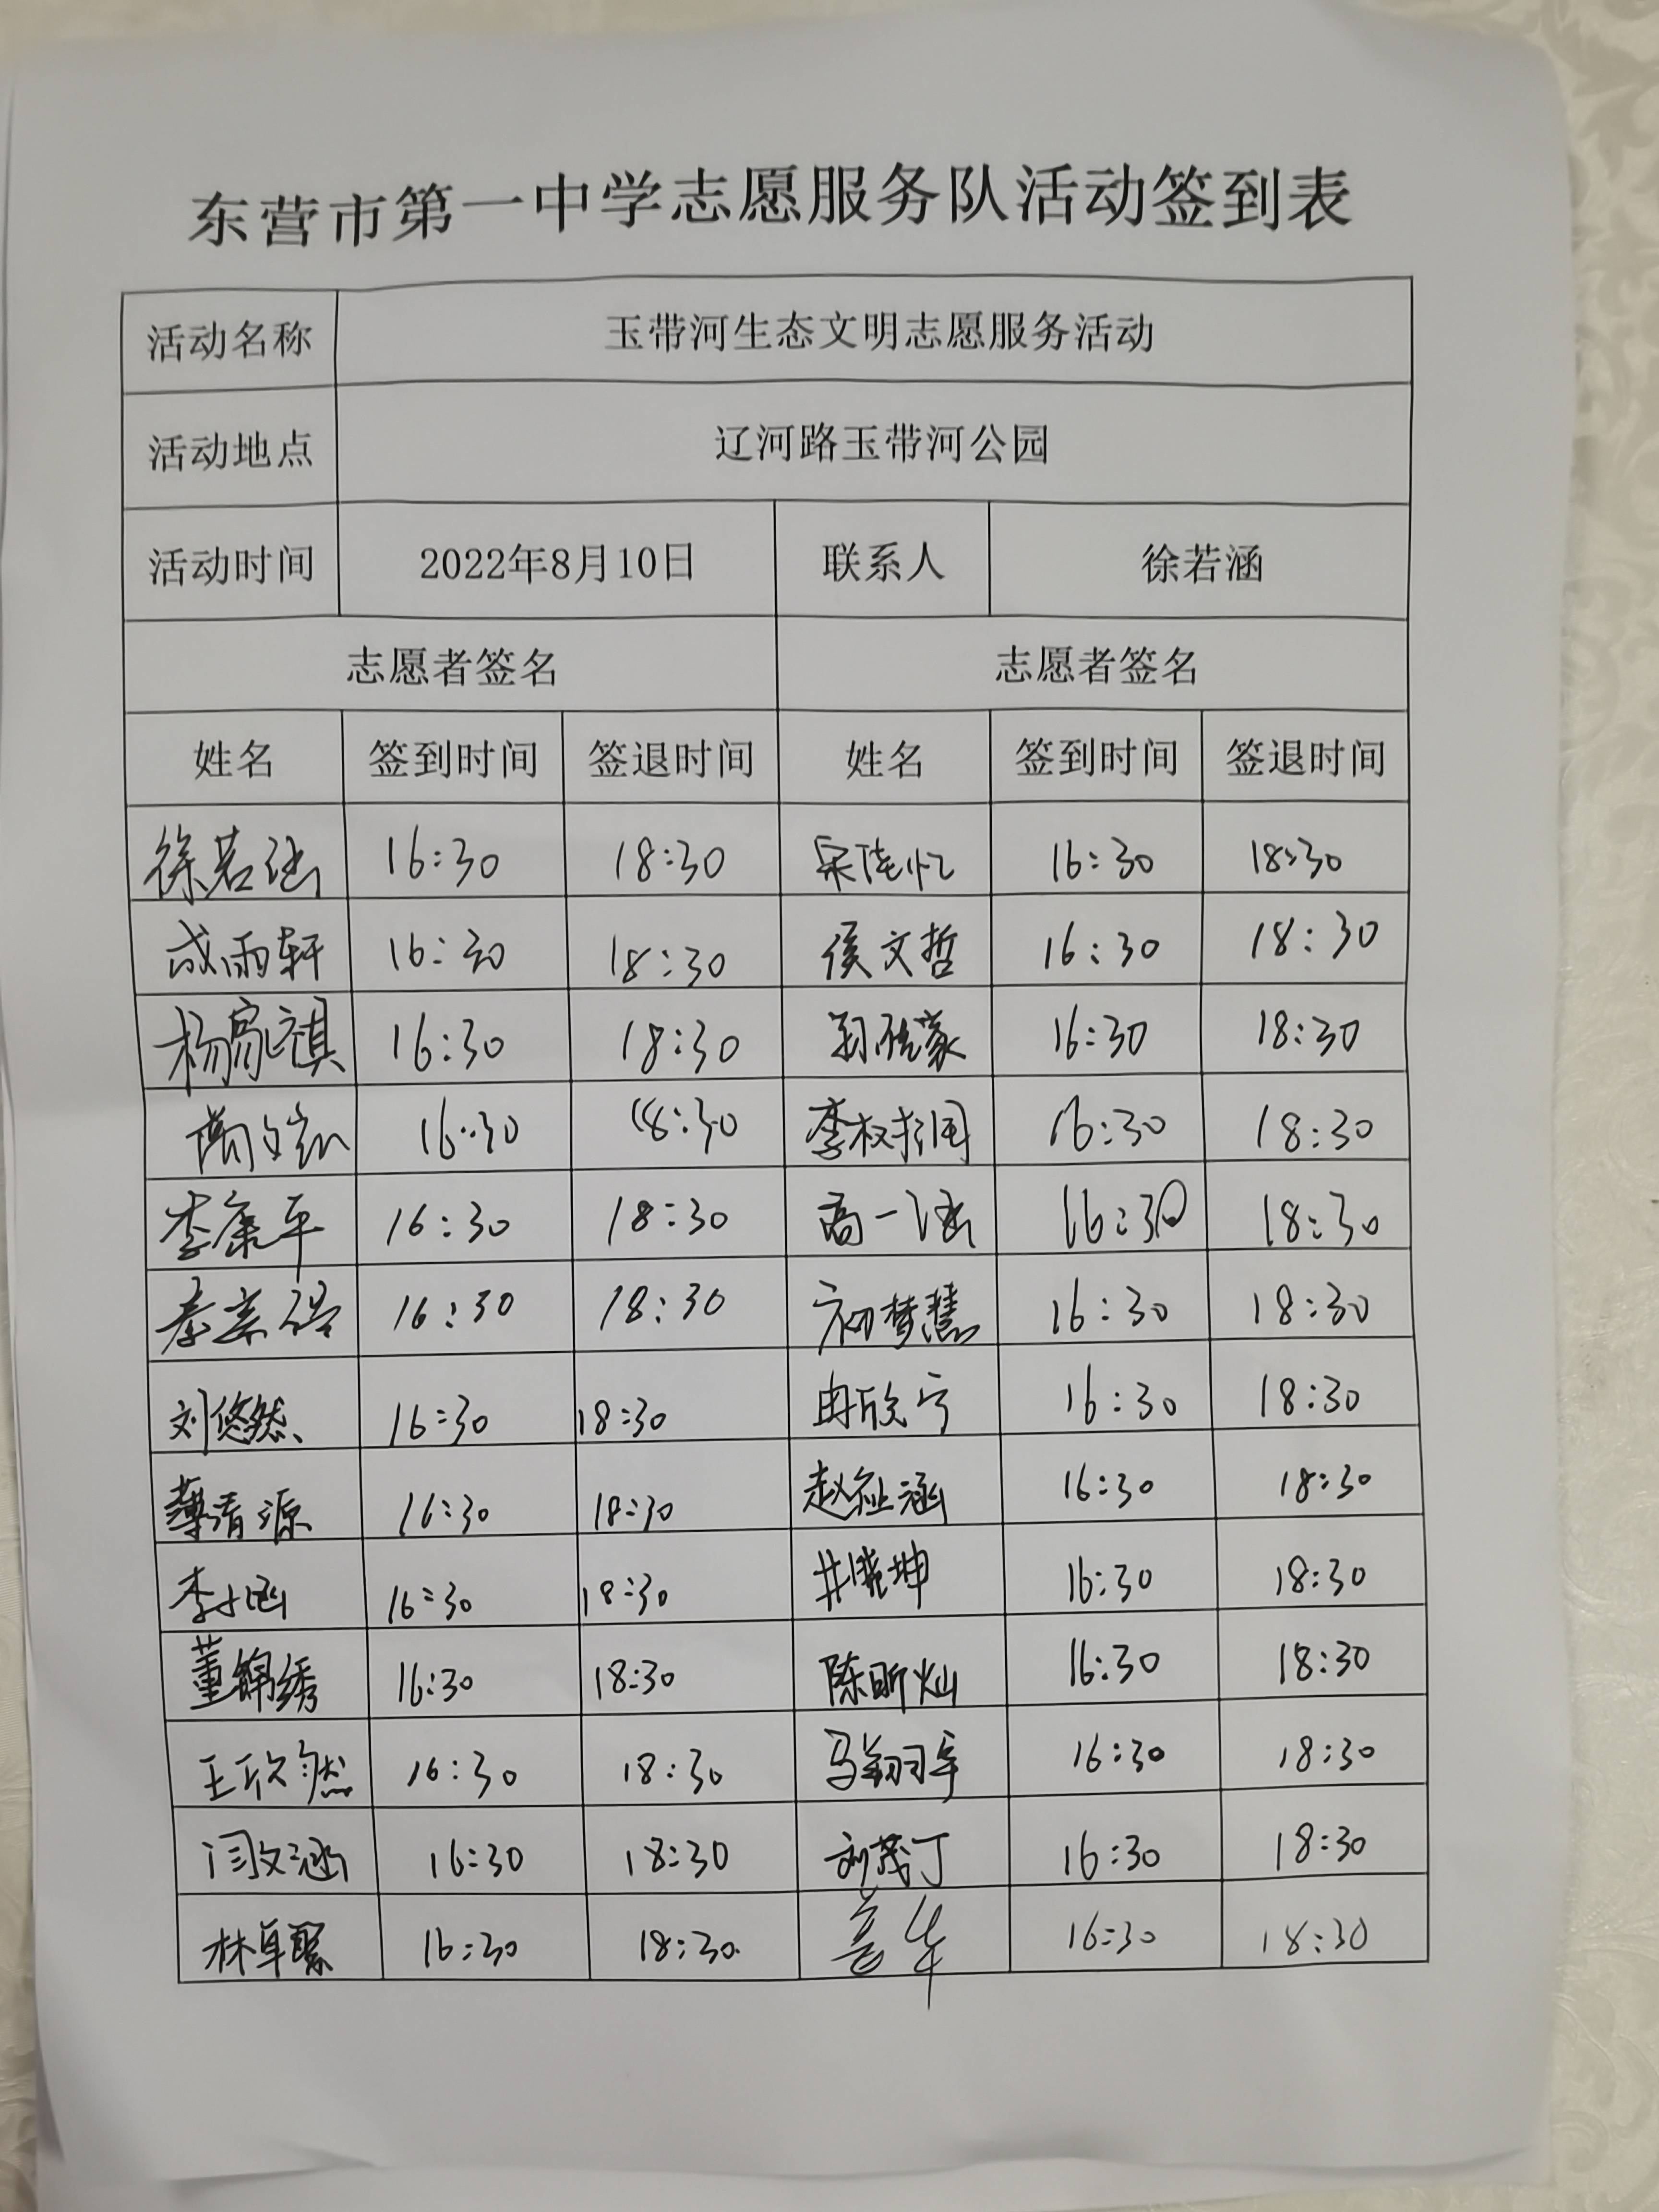 东营市第一中学志愿服务队活动签到表
活动名称 玉带河生态文明志愿服务活动
活动地点 辽河路玉带河公园
活动时间 2022年8月10日 联系人 徐若涵
志愿者签名 志愿者签名
姓名 签到时间 签退时间 姓名 签到时间 签退时间
徐若涵 16:30 18:30 16:30 18:30
成雨轩 16:30 18:30 侯文哲 16:30 18:30
杨家祺 16:30 18:30 16:30 18:30
16:30 18:30 16:30 18:30
李康平 16:30 18:30 高一涵 16:30 18:30
16:30 18:30 初梦慧 16:30 18:30
刘悠然 16:30 18:30 冉欣宁 16:30 18:30
薄清源 16:30 18:30 赵祉涵 16:30 18:30
李小涵 16:30 18:30 井晓坤 16:30 18:30
董锦绣 16:30 18:30 陈昕灿 16:30 18:30
王欣然 16:30 18:30 马翱宇 16:30 18:30
闫文涵 16:30 18:30 刘茂丁 16:30 18:30
林卓翳 16:30 18:30 16:30 18:30